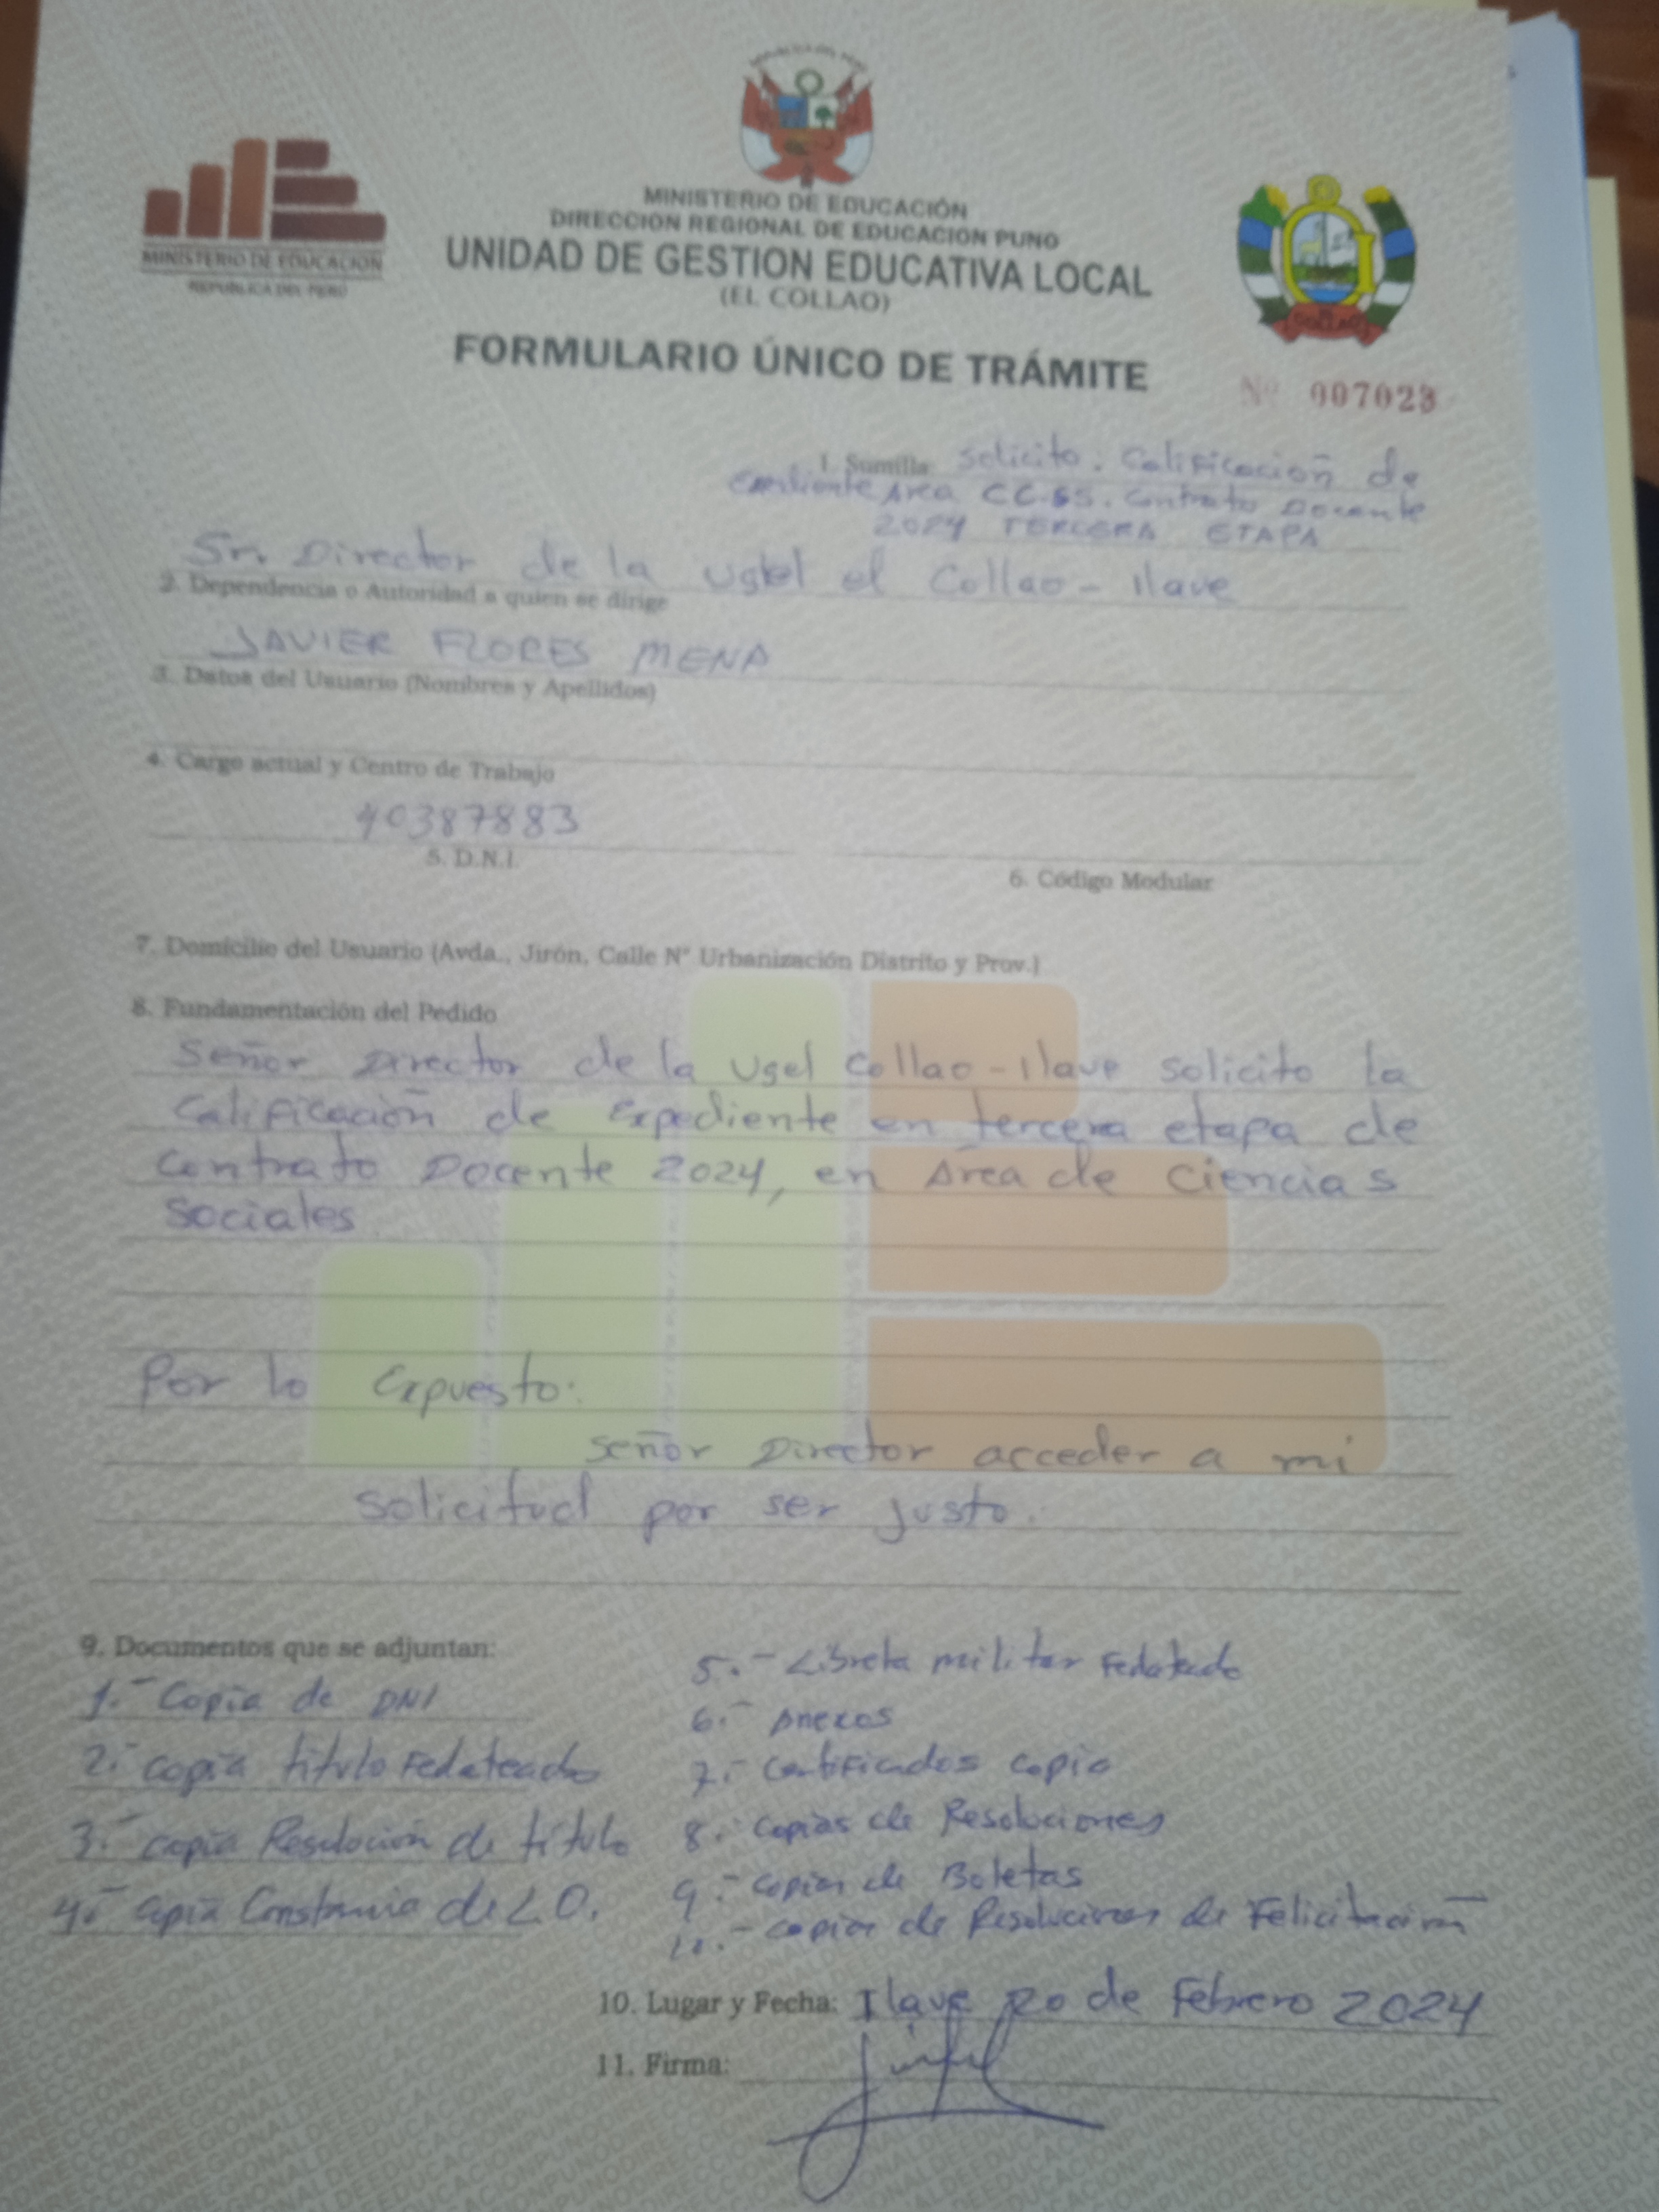 MINISTERIO DE EDUCACION
REPUBLICA DEL PERÚ
MINISTERIO DE EDUCACIÓN
DIRECCION REGIONAL DE EDUCACION PUNO
UNIDAD DE GESTION EDUCATIVA LOCAL
(EL COLLAO)
COLLAO
FORMULARIO ÚNICO DE TRÁMITE
Nº 007023
1. Sumilla: Solicito: Calificación de
Expediente Area CC.SS. Contrato Docente
2024 TERCERA ETAPA
Sr. Director de la Ugel el Collao - Ilave
2. Dependencia o Autoridad a quien se dirige
JAVIER FLORES MENA
3. Datos del Usuario (Nombres y Apellidos)
4. Cargo actual y Centro de Trabajo
40387883
5. D.N.I.
6. Código Modular
7. Domicilio del Usuario (Avda., Jirón, Calle Nº Urbanización Distrito y Prov.)
8. Fundamentación del Pedido
Señor Director de la Ugel Collao - Ilave solicito la
Calificación de Expediente en tercera etapa de
Contrato Docente 2024, en Area de Ciencias
Sociales
Por lo Expuesto:
Señor Director acceder a mi
solicitud por ser justo.
9. Documentos que se adjuntan:
1.- Copia de DNI
2.- copia título Fedateado
3.- copia Resolución de título
4.- copia Constancia de L O.
5.- Libreta militar Fedateado
6.- Anexos
7.- Certificados copia
8.- Copias de Resoluciones
9.- Copias de Boletas
10.- copias de Resoluciones de Felicitación
10. Lugar y Fecha: Ilave 20 de Febrero 2024
11. Firma: